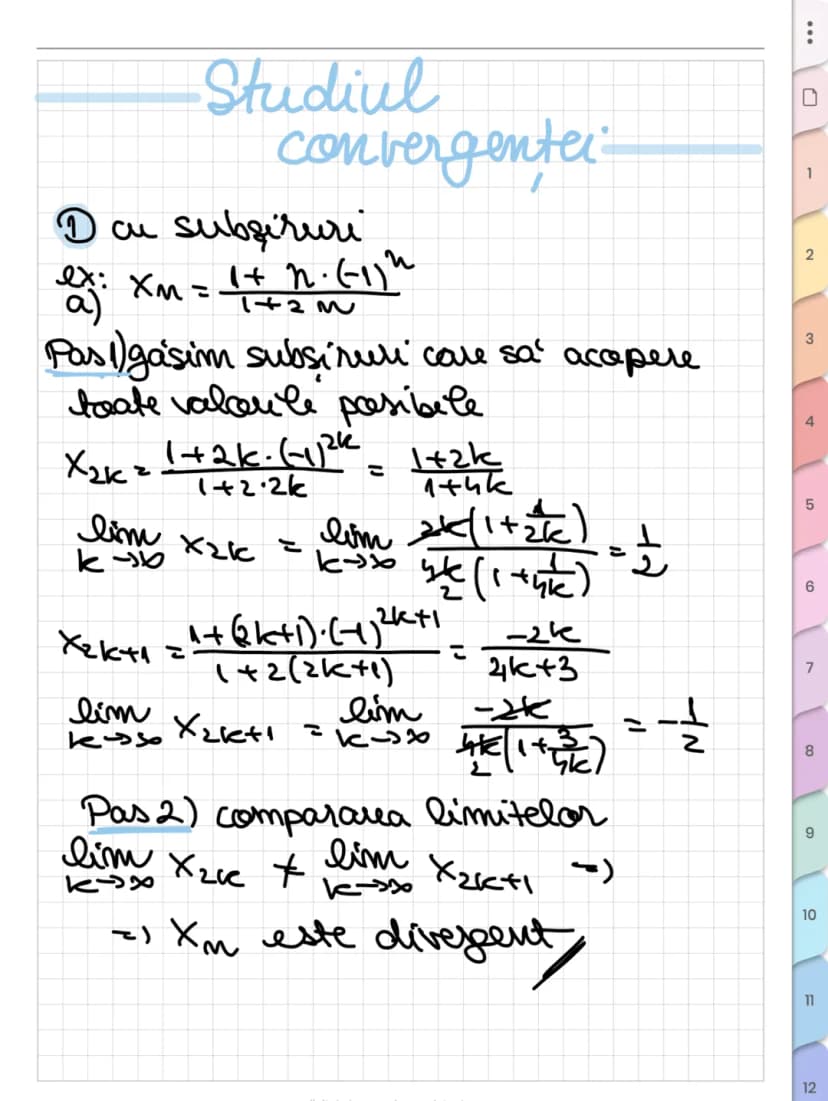 Studiul
convergenței
① cu subșiruri
ex: a) xn = (1 + n·(-1)^n) / (1+2n)
Pas1) găsim subșiruri care să acopere
toate valorile posibile
x2k = (1+2k·(-1)^2k) / (1+2·2k) = (1+2k) / (1+4k)
lim k→∞ x2k = lim k→∞ 2k(1+1/2k) / 4k(1+1/4k) = 1/2
x2k+1 = (1+(2k+1)·(-1)^2k+1) / (1+2(2k+1)) = -2k / (4k+3)
lim k→∞ x2k+1 = lim k→∞ -2k / 4k(1+3/4k) = -1/2
Pas2) compararea limitelor
lim k→∞ x2k ≠ lim k→∞ x2k+1 =>
=> xn este divergent
1
2
3
4
5
6
7
8
9
10
11
12